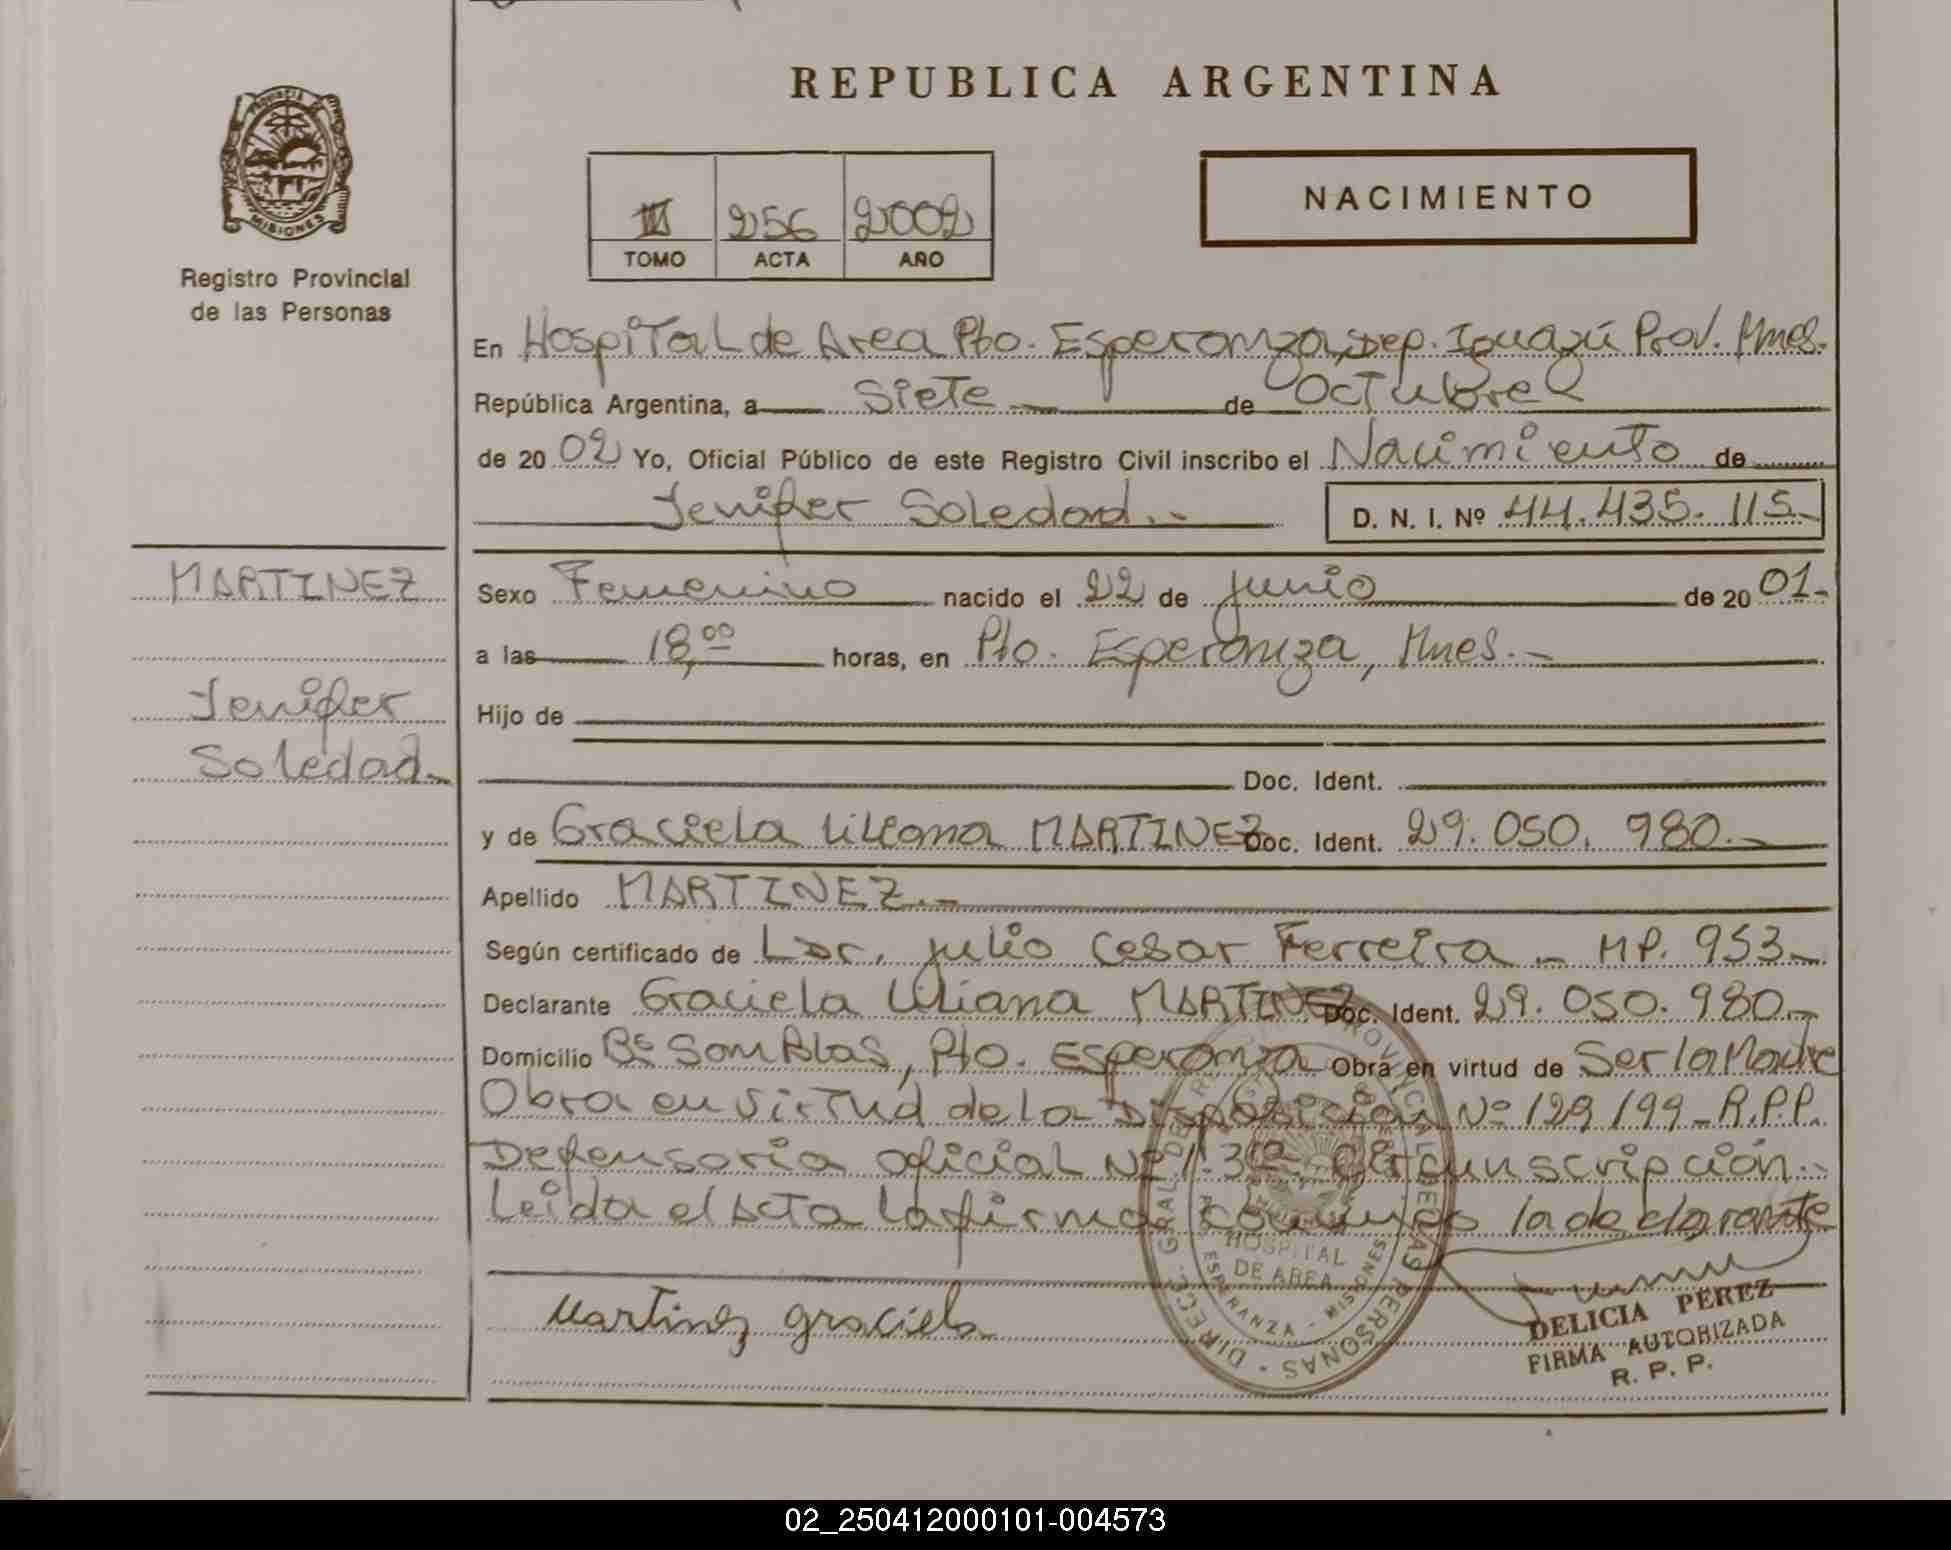 REPUBLICA ARGENTINA
PROVINCIA DE MISIONES
Registro Provincial
de las Personas
III 256 2002
TOMO ACTA AÑO
NACIMIENTO
En Hospital de Area Pto. Esperanza, Dep. Iguazú Prov. Mnes.
República Argentina, a Siete de Octubre
de 20 02 Yo, Oficial Público de este Registro Civil inscribo el Nacimiento de
Jenifer Soledad.-
D. N. I. Nº 44.435.115-
MARTINEZ
Jenifer
Soledad-
Sexo Femenino nacido el 22 de junio de 20 01-
a las 18,00 horas, en Pto. Esperanza, Mnes.-
Hijo de
Doc. Ident.
y de Graciela Liliana MARTINEZ Doc. Ident. 29.050.980.-
Apellido MARTINEZ.-
Según certificado de Dr. Julio Cesar Ferreira - MP. 953-
Declarante Graciela Liliana MARTINEZ Doc. Ident. 29.050.980.-
Domicilio Bº San Blas, Pto. Esperanza Obra en virtud de Ser la Madre
Obra en virtud de la Disposición Nº 129/99-R.P.P.
Defensoria oficial Nº 1. 3ra Circunscripción.-
Leida el Acta la firma conmigo la declarante
Martinez Graciela
HOSPITAL
DE AREA
ESPERANZA - MISIONES
DELICIA PEREZ
FIRMA AUTORIZADA
R. P. P.
02_250412000101-004573